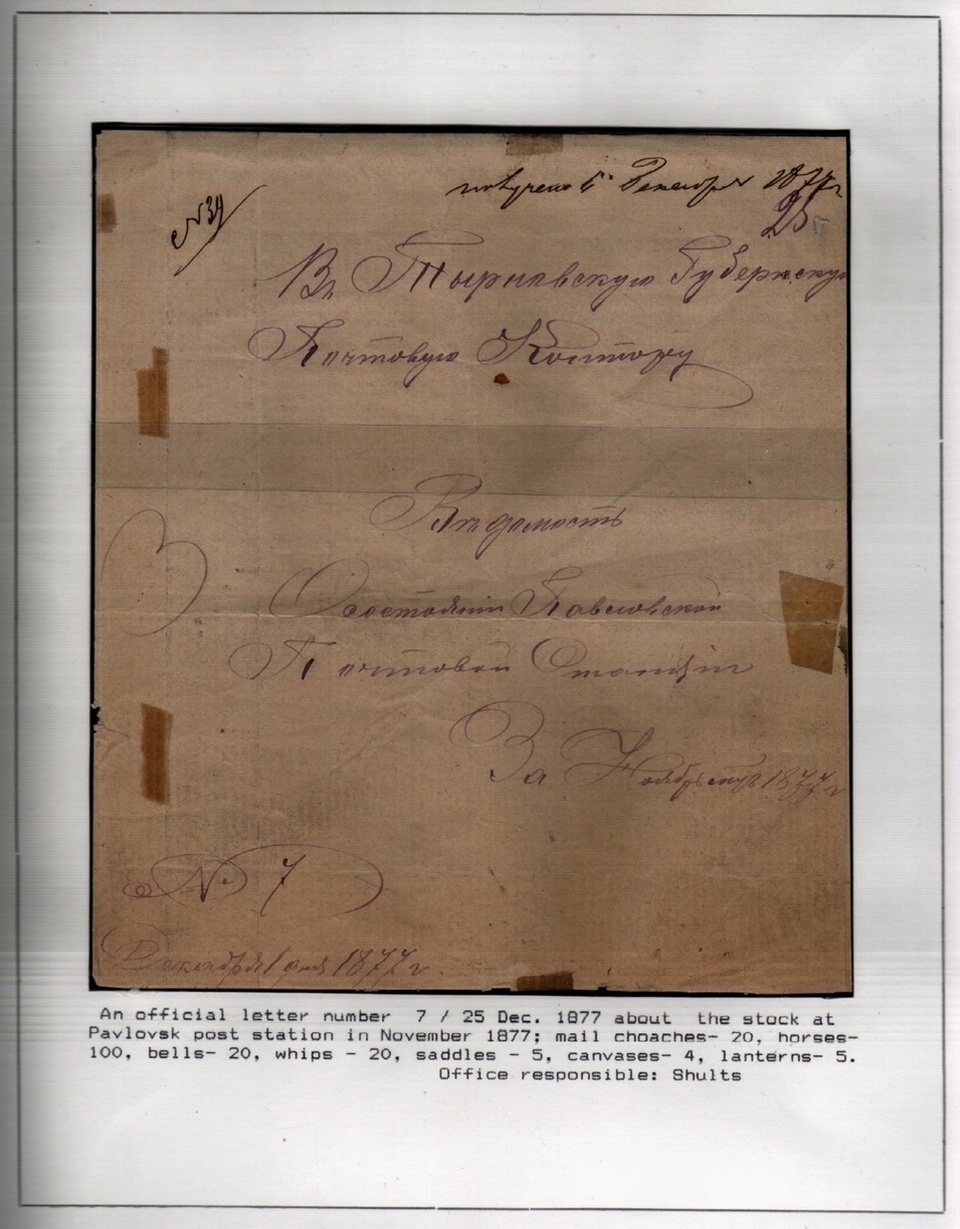 получено 6 Декабря 1877 г
25
№ 34
Въ Тырновскую Губернскую
Почтовую Контору
Вѣдомость
О состоянии Павловской
Почтовой Станціи
За Ноябрь мѣ 1877 г
№ 7
Декабря 1 дня 1877 г.
An official letter number 7 / 25 Dec. 1877 about the stock at
Pavlovsk post station in November 1877; mail choaches- 20, horses-
100, bells- 20, whips - 20, saddles - 5, canvases- 4, lanterns- 5.
Office responsible: Shults